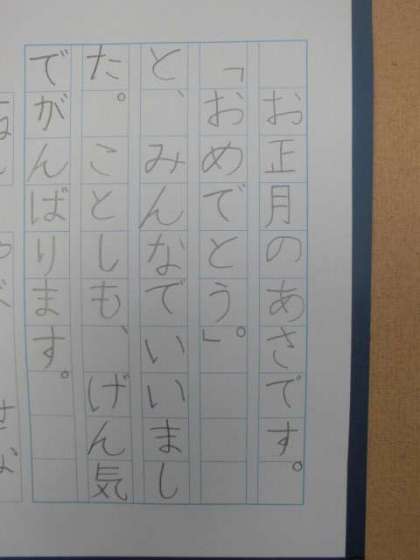 お正月のあさです。
「おめでとう。」
と、みんなでいいまし
た。ことしも、げん気
でがんばります。